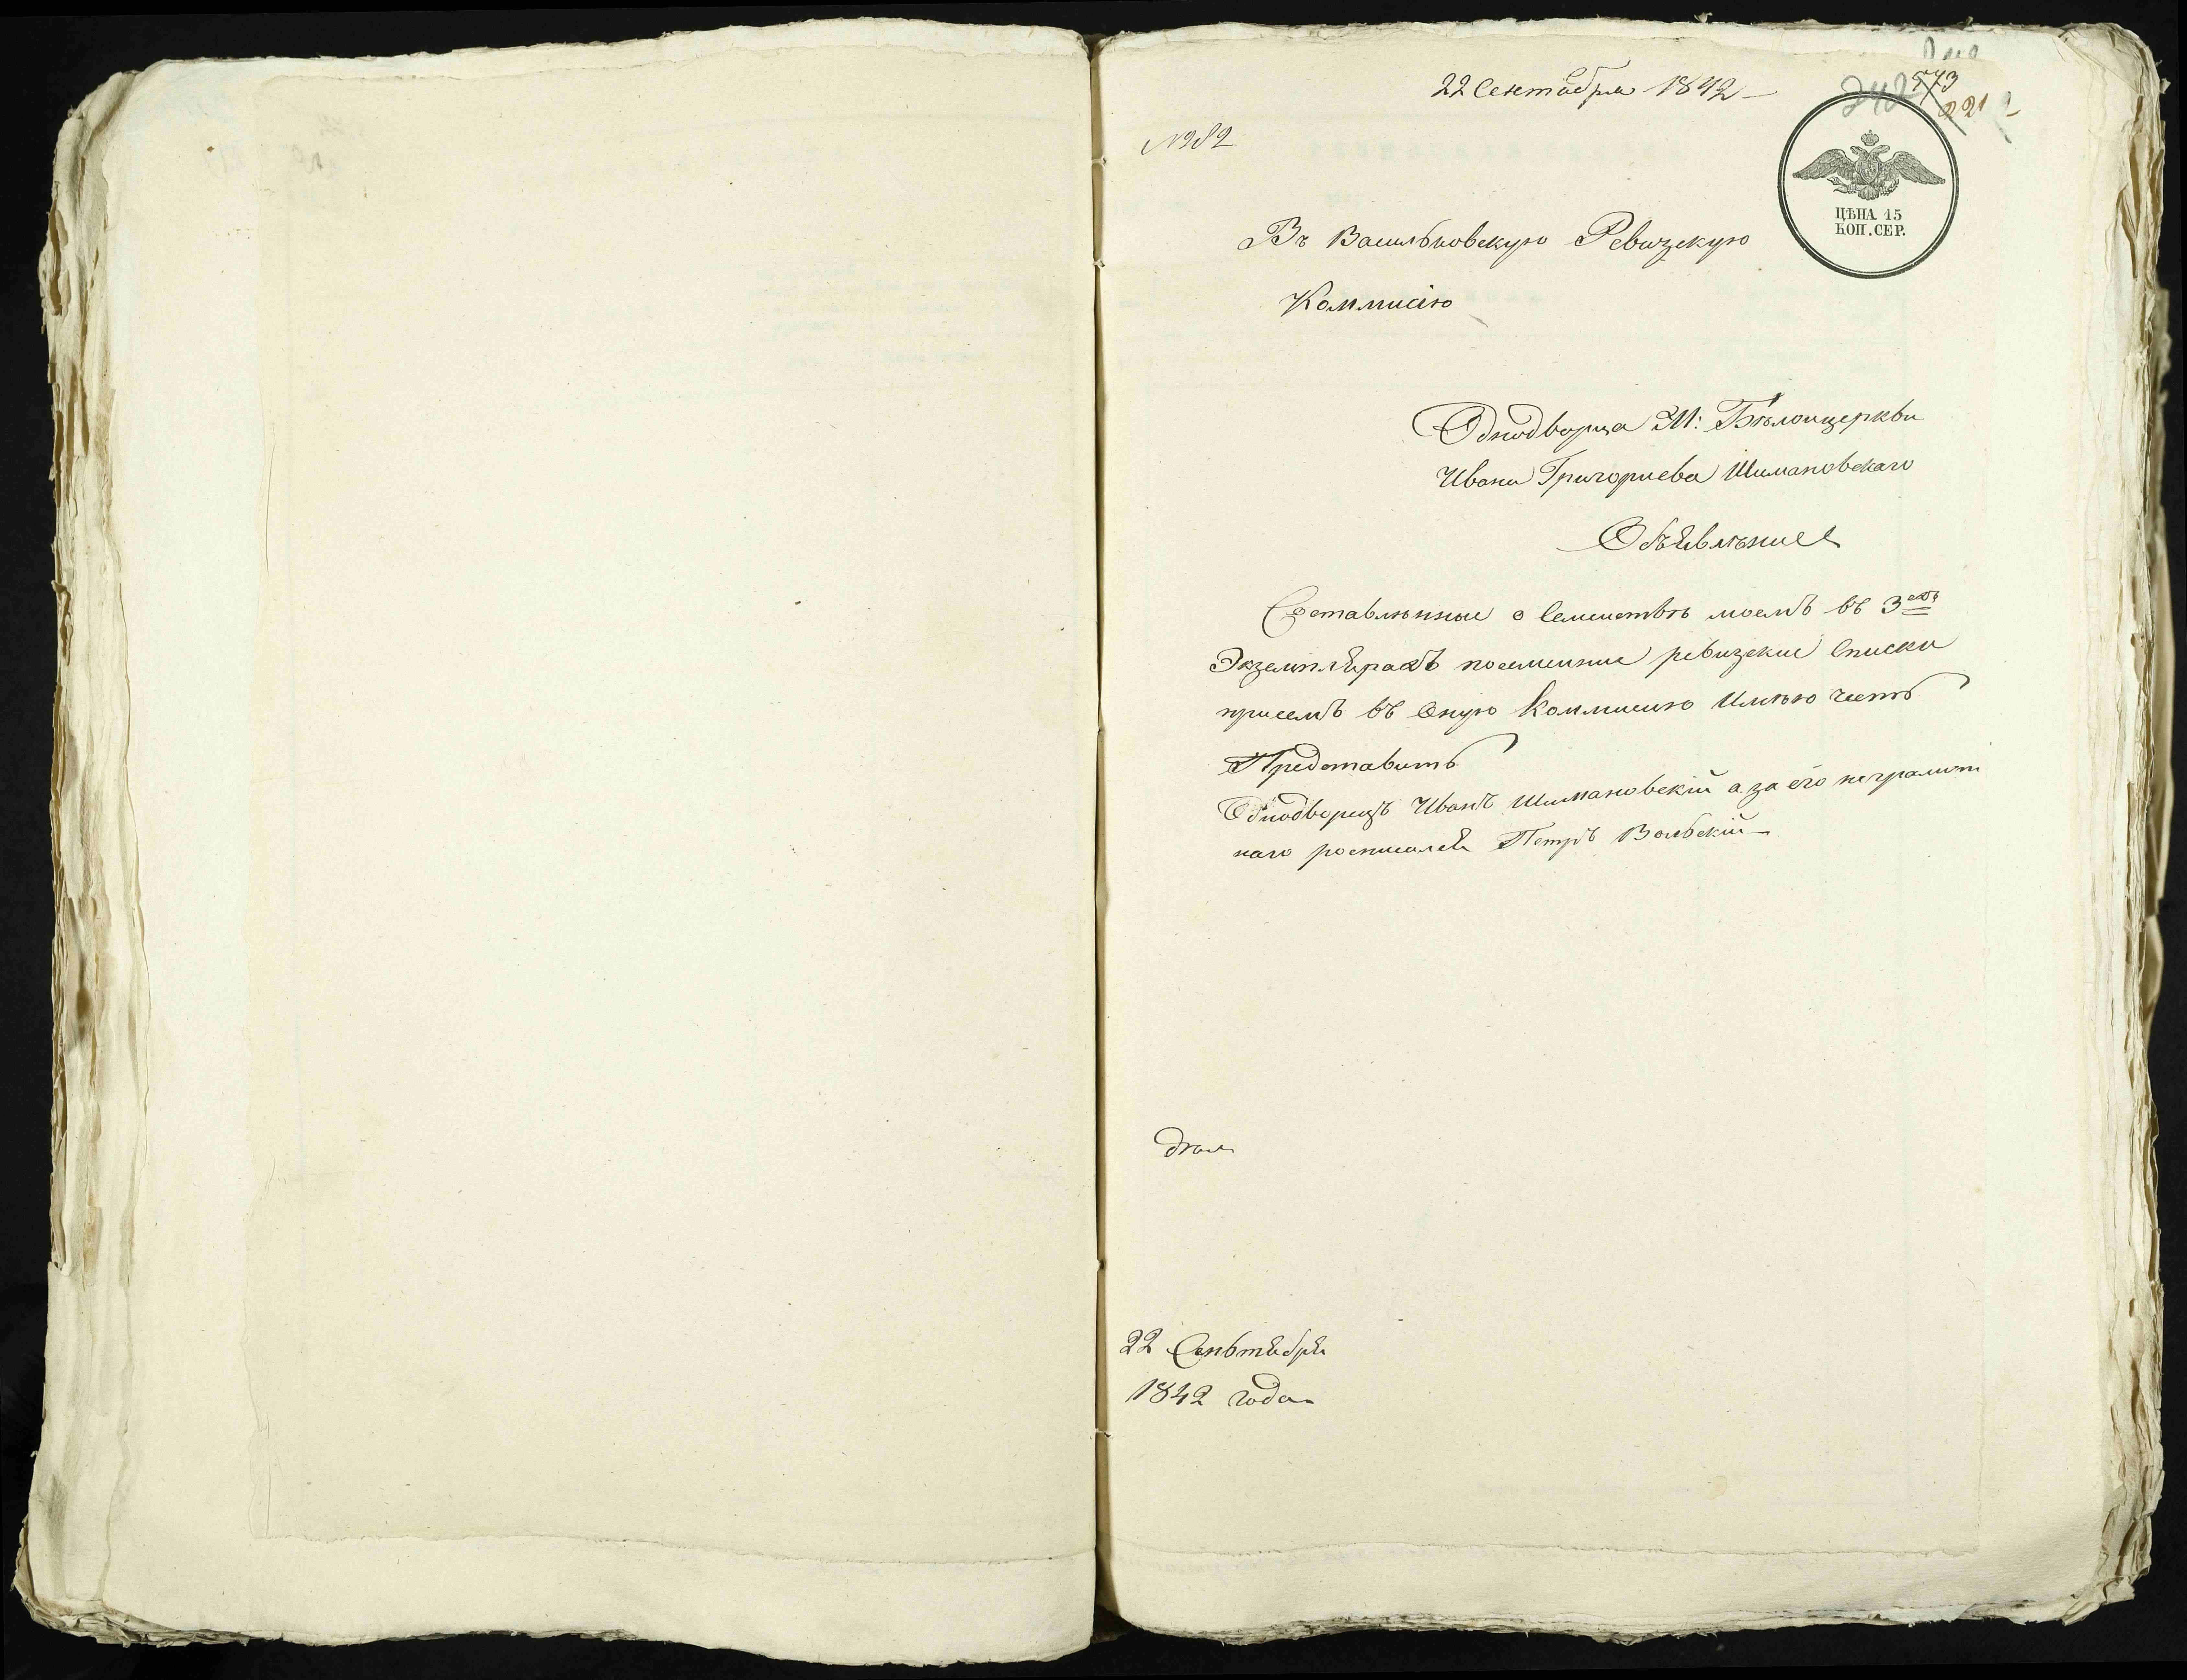 22 Сентября 1842
242 573
221
№ 982
ЦѢНА 15
КОП. СЕР.
Въ Васильковскую Ревизскую
Коммисію
Однодворца М: Бѣлоицеркви
Ивана Григориева Шимановскаго
Объявлѣние
Составлѣнные о Семействѣ моемъ въ 3ехъ
Экземплярахъ посемейние ревизские Списки
присемъ въ Оную Коммисию Имѣю честь
Представить
Однодворецъ Иванъ Шимановскій а за его неграмот
наго росписался Петръ
22 Сенътября
1842 года